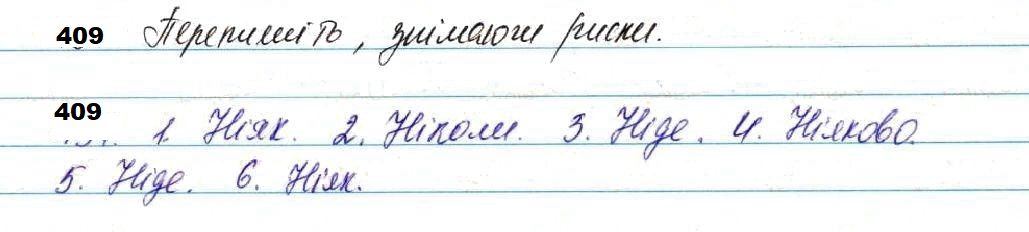 409 Перепишіть, знімаючи риски.
409 1. Ніяк. 2. Ніколи. 3. Ніде. 4. Ніяково.
5. Ніде. 6. Ніяк.